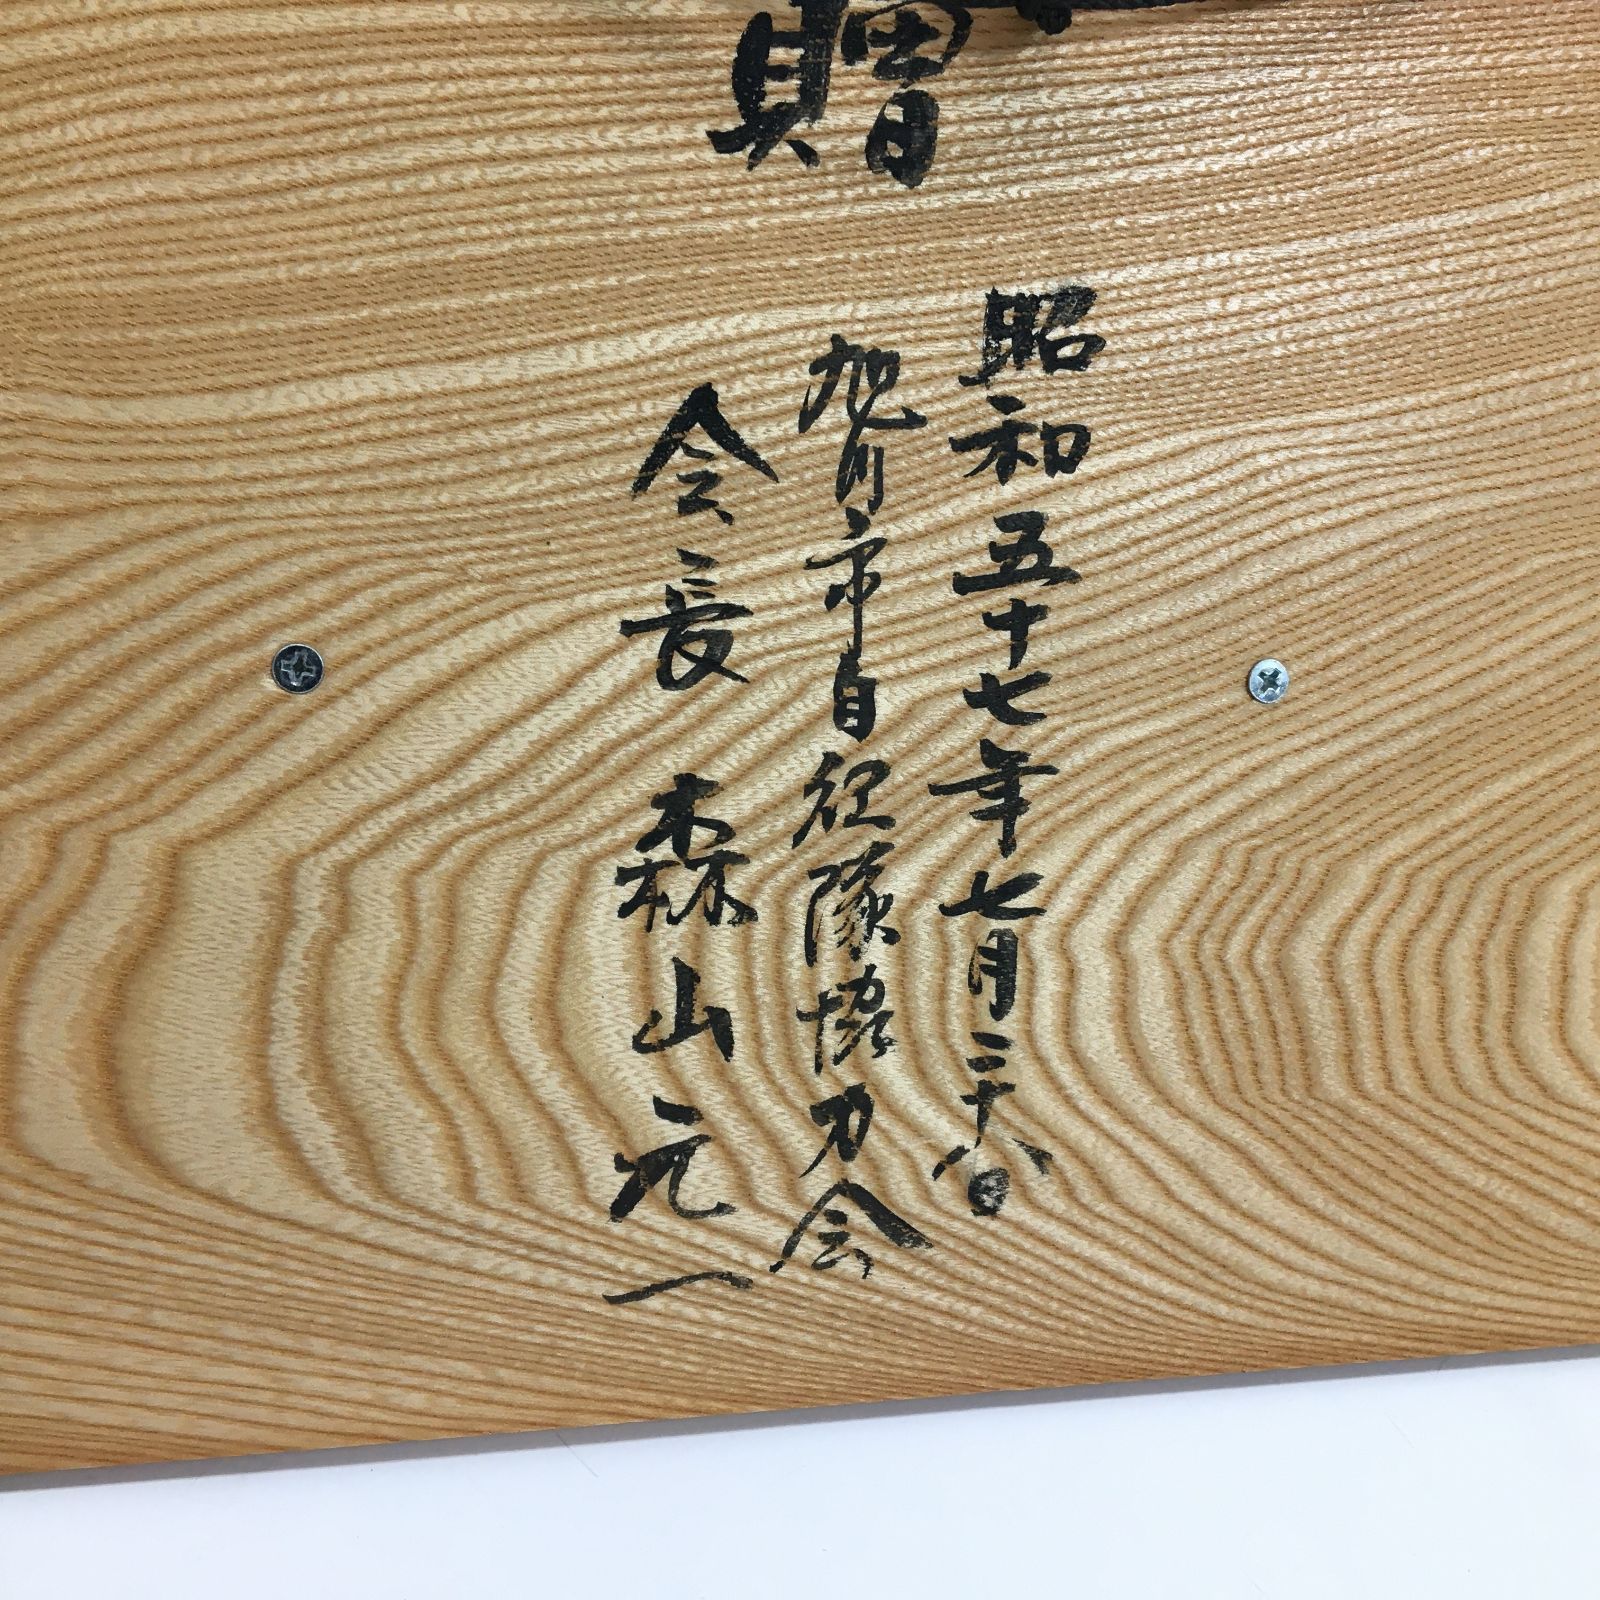 贈
昭和五十七年七月二十八日
旭川市自衛隊協力会
会長 森山元一